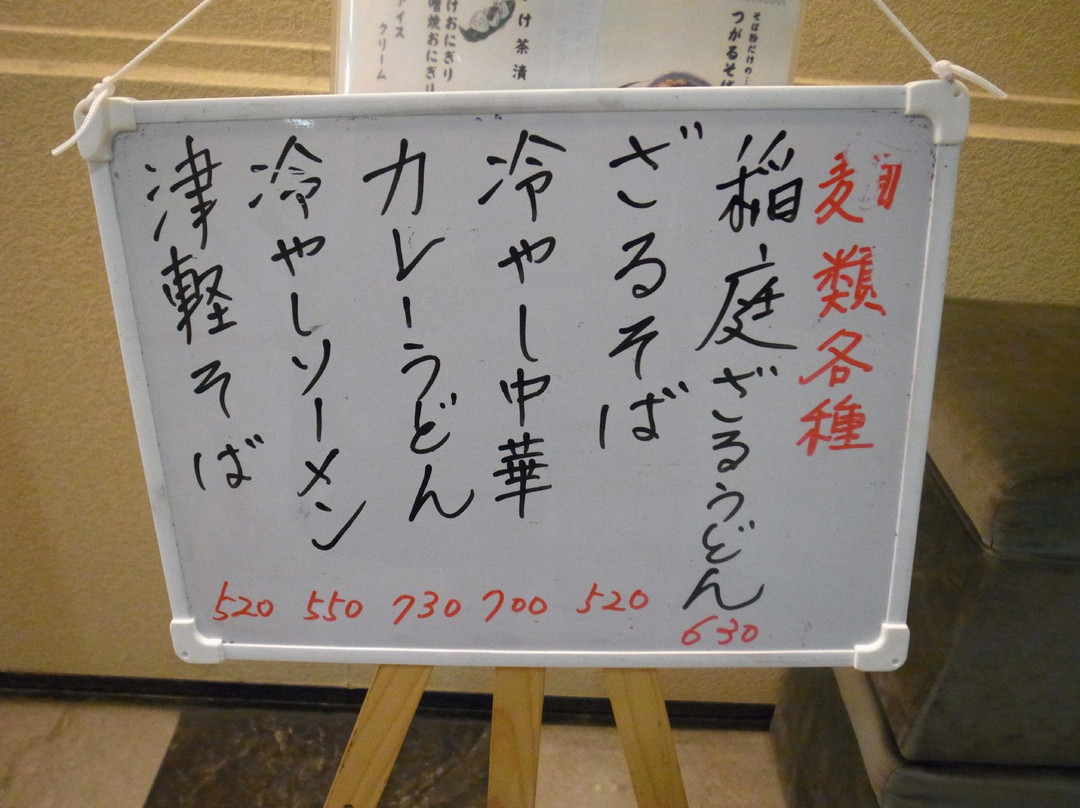 け茶漬
けおにぎり
噌焼おにぎり
アイス
クリーム
そば粉だけの…
つがるそば
麺類各種
稲庭ざるうどん 630
ざるそば 520
冷やし中華 700
カレーうどん 730
冷やしソーメン 550
津軽そば 520